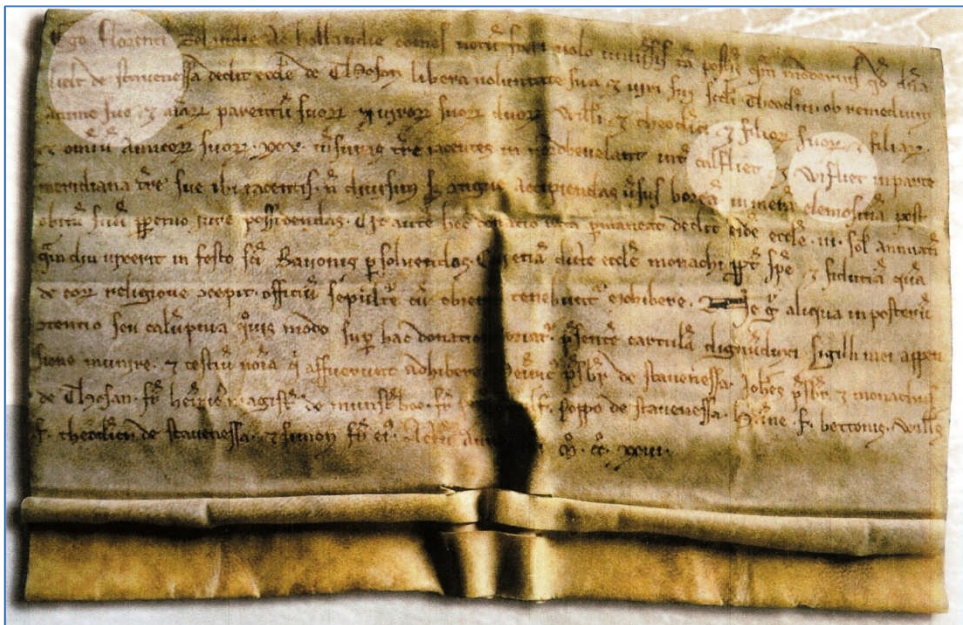 Ego florenti⁹ zelandie ⁊ hollandie comes notū fieri uolo uniūsis tā post̄is quā modernis qđ dn̄a
de stauenessa dedit eccl̄e de Thosan libera uoluntate sua ⁊ uiri sui scil̄. Theod'ici ob remedium
anime sue ⁊ aīarꝝ parentū suorꝝ ⁊ uirorꝝ suorꝝ duorꝝ Will'i ⁊ theod'ici ⁊ filiorꝝ suorꝝ ⁊ filiarꝝ
⁊ omiū amicorꝝ suorꝝ xxv. m̄suras tr̄e iacentes in nordbeuelant int̄ calfliet ⁊ Wifliet in parte
meridiana tr̄e sue ibi iacentis. accipiendas ūsus boreā elemosinā post
obitū suū ꝑpetuo iure possidendas. Vt autē hec rata ꝑmaneat dedit eidē eccl̄e .iii. sol' annuatī
quādiu uixerit in festo sc̄i Bauonis ꝑsoluendas. etiā dicte eccl̄e monachi ꝓpt̄ spē ⁊ fiduciā quā
de eorꝝ religione ꝯcepit. officiū sepultūe cū obierit tenebunt̄ exhibere. Ne ḡ aliqua in posterū
ꝯtentio seu calūpnia quis modo suꝑ hac donatione oriat̄. p̄sentē cartulā dignū duxi sigilli mei appen
sione munire. ⁊ testiū noīa qi affuerunt adhibere. Heinric⁹ p̄sbr̄ de stauenessa. Joh̄es p̄sbr̄ ⁊ monachus
de Thosan. fr̄ henric⁹ magist̄ de . fr̄ . f. poppo de stauenessa. f. bettonis. Will's
f. theod'ici de stauenessa. ⁊ simon fr̄ ei⁹. Actū M̊. cc̊. xxiii.